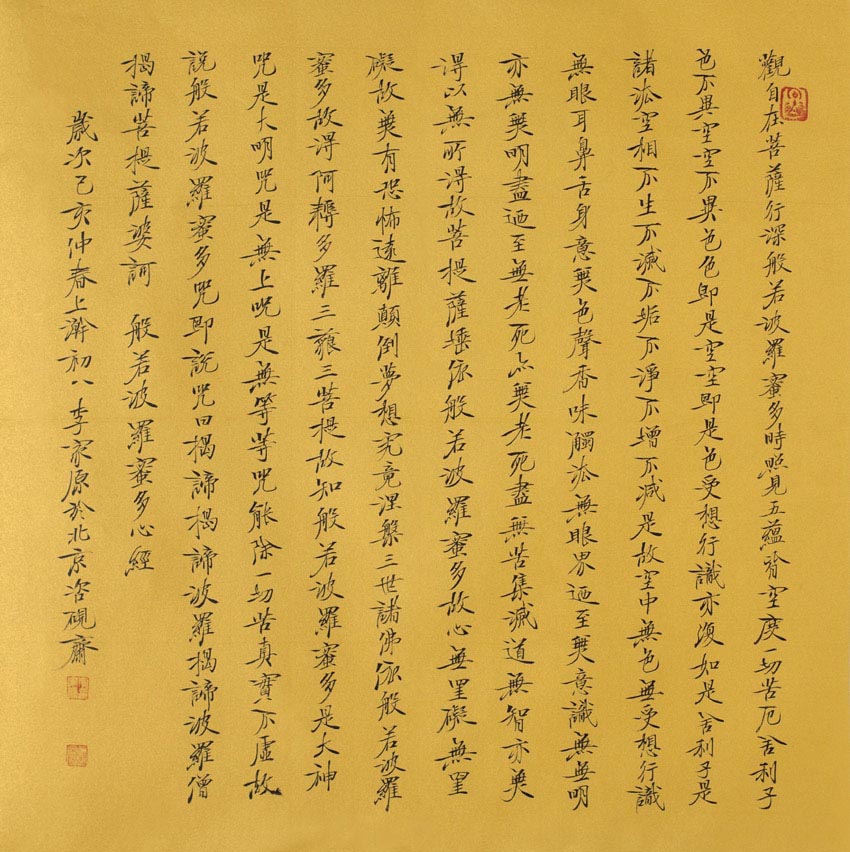 觀自在菩薩行深般若波羅蜜多時照見五蘊皆空度一切苦厄舍利子
色不異空空不異色色即是空空即是色受想行識亦復如是舍利子是
諸法空相不生不滅不垢不淨不增不減是故空中無色無受想行識
無眼耳鼻舌身意無色聲香味觸法無眼界迺至無意識無無明
亦無無明盡迺至無老死亦無老死盡無苦集滅道無智亦無
得以無所得故菩提薩埵依般若波羅蜜多故心無罣礙無罣
礙故無有恐怖遠離顛倒夢想究竟涅槃三世諸佛依般若波羅
蜜多故得阿耨多羅三藐三菩提故知般若波羅蜜多是大神
咒是大明咒是無上咒是無等等咒能除一切苦真實不虛故
說般若波羅蜜多咒即說咒曰揭諦揭諦波羅揭諦波羅僧
揭諦菩提薩婆訶 般若波羅蜜多心經
歲次己亥仲春上澣初八李家原於北京咨硯齋